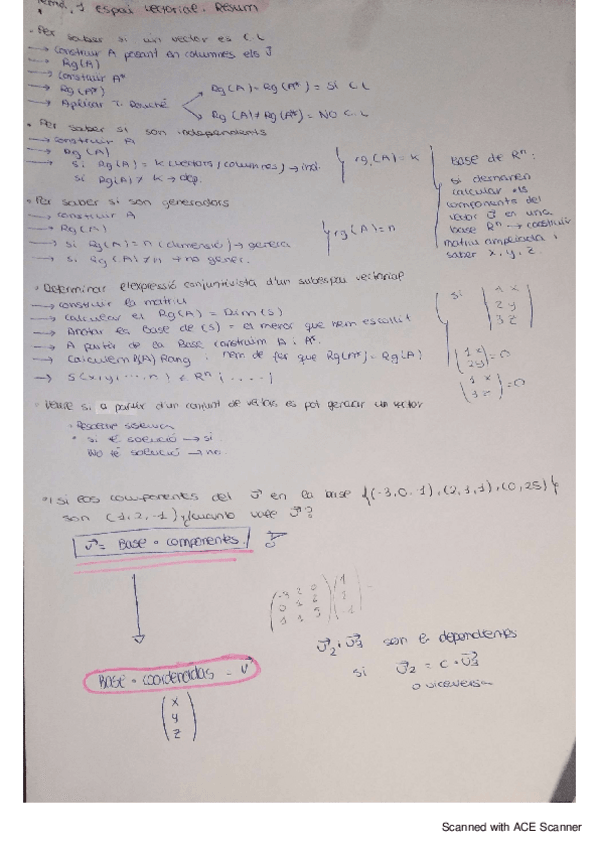 Tema 1 espai vectorial. Resum
· Per saber si un vector es C.L
→ Construir A posant en columnes els v⃗
→ Rg(A)
→ Construir A*
→ Rg(A*)
→ Aplicar T. Rouché
Rg(A) = Rg(A*) = Sí C.L
Rg(A) ≠ Rg(A*) = NO C.L
· Per saber si son independents
→ Construir A
→ Rg(A)
→ si Rg(A) = k (vectors/columnes) → ind.
si Rg(A) ≠ k → dep.
rg(A) = k
Base de Rⁿ:
si demanen
calcular els
components del
vector v⃗ en una
base Rⁿ → construir
matriu ampliada i
saber x, y, z.
· Per saber si son generadors
→ Construir A
→ Rg(A)
→ si Rg(A) = n (dimensió) → genera
→ si Rg(A) ≠ n → no gener.
rg(A) = n
· Determinar l'expressió conjuntivista d'un subespai vectorial
→ construir la matriu
→ calcular el Rg(A) = Dim(S)
→ Anotar la Base de (S) = el menor que hem escollit
→ A partir de la Base construim A i A*.
→ Calculem Rang i hem de fer que Rg(A*) = Rg(A)
→ S(x, y, ... n) ∈ Rⁿ ; ....
si
1 x
2 y
3 z
(1 x
2 y) = 0
(1 x
3 z) = 0
· Veure si a partir d'un conjunt de vectors es pot generar un vector
· Resoldre sistema
· si té solució → si
No té solució → no.
si los componentes del v⃗ en la base {(-3,0,1),(2,1,1),(0,2,5)}
son (1,2,-1) ¿cuanto vale v⃗?
v⃗ = Base · componentes.
-3 2 0
0 1 2
1 1 5
1
2
-1
v⃗₂ · v⃗₁ son l. dependientes
si v⃗₂ = c · v⃗₁
o viceversa
Base · coordenadas = v⃗
x
y
z
Scanned with ACE Scanner